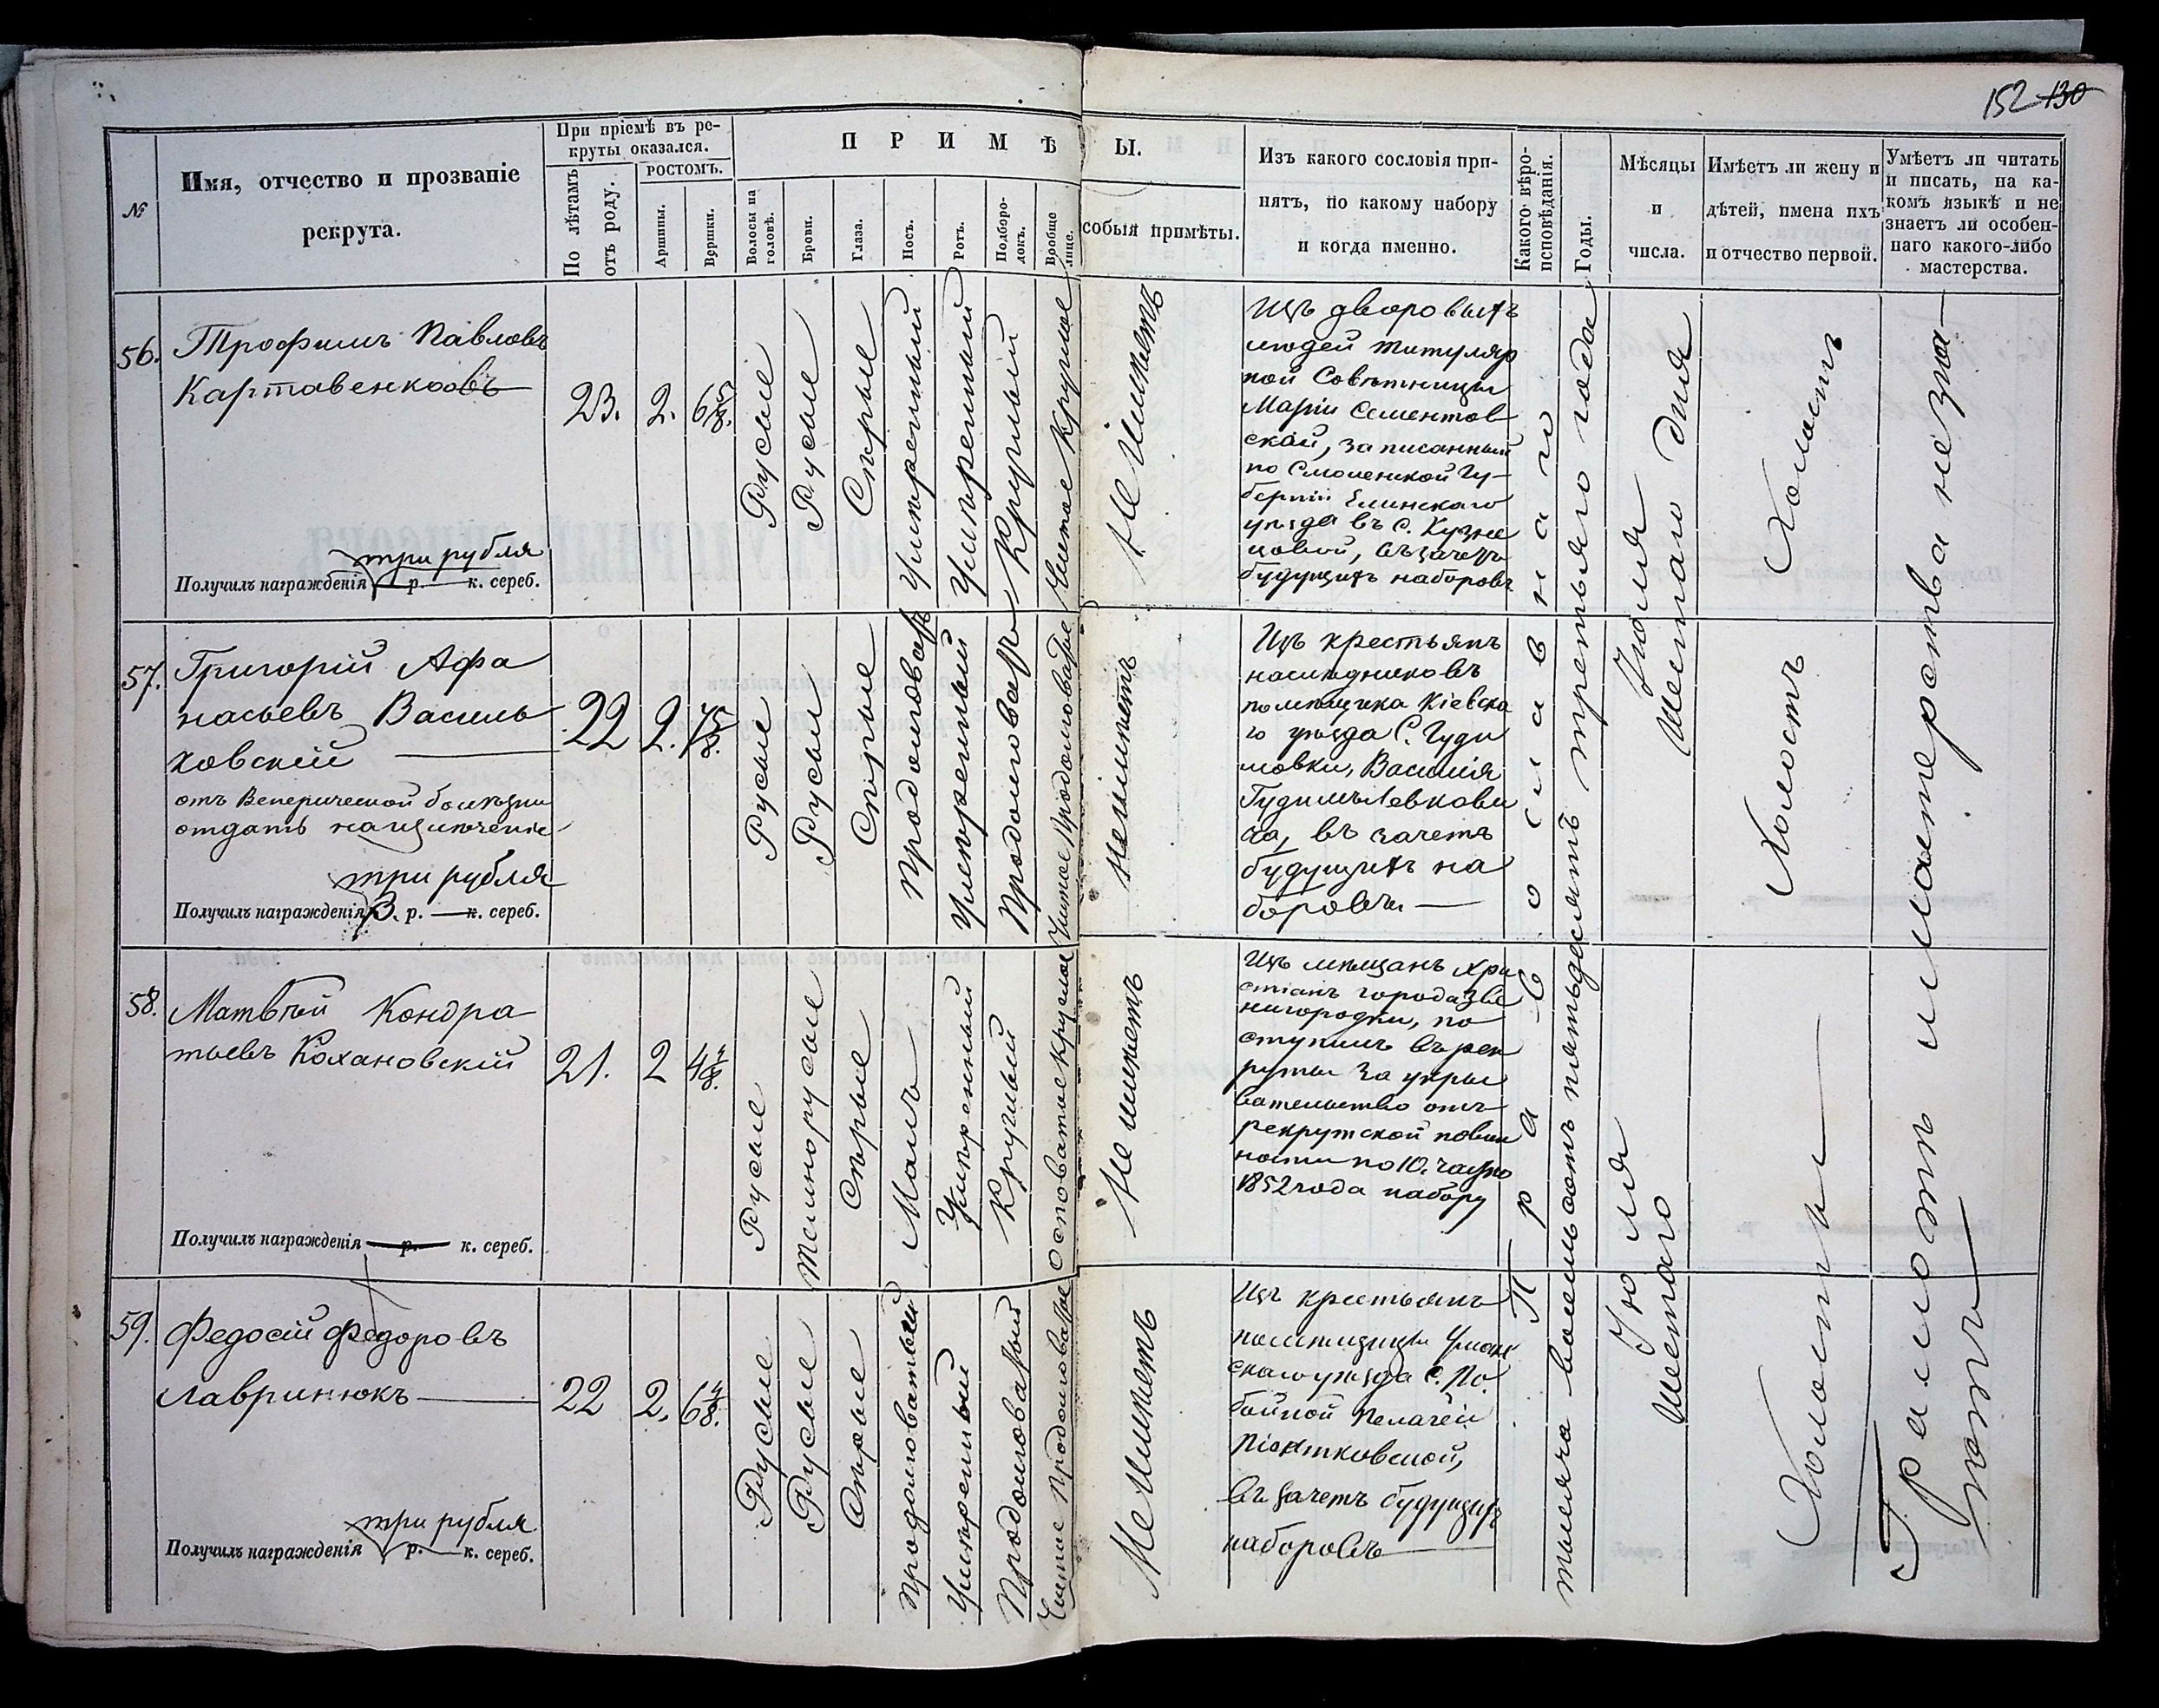 152 130
№
Имя, отчество и прозваніе
рекрута.
При пріемѣ въ ре-
круты оказался.
По лѣтамъ
отъ роду.
РОСТОМЪ.
Аршины.
Вершки.
ПРИМѢ
Ы.
Волосы на
головѣ.
Брови.
Глаза.
Носъ.
Ротъ.
Подборо-
докъ.
Вообще
лице.
собыя примѣты.
Изъ какого сословія при-
нятъ, по какому набору
и когда именно.
Какого вѣро-
исповѣданія.
Годы.
Мѣсяцы
и
числа.
Имѣетъ ли жену и
дѣтей, имена ихъ
и отчество первой.
Умѣетъ ли читать
и писать, на ка-
комъ языкѣ и не
знаетъ ли особен-
наго какого-либо
мастерства.
56.
Трофимъ Павловъ
Картавенковъ
три рубля
Получилъ награжденія р. — к. сереб.
23.
2.
6 5/8.
Русые
Русые
Сѣрые
Умѣренный
Умѣренный
Круглый
Чистое Круглое
Не Имѣетъ
Изъ дворовыхъ
людей титуляр
ной Совѣтницы
Маріи Сементов
ской, записанный
по Смоленской Гу-
берніи Елинскаго
уѣзда въ С. Кузне
цовой, въ зачетъ
будущихъ наборовъ
Православнаго
тысяча восемьсотъ пятьдесятъ третьяго года
Іюля
Шестаго дня
Холостъ
Грамотѣ и мастерства не зна-
ютъ
57.
Григорій Афа
насьевъ Василь
ковскій
отъ Венерической болѣзни
отдать на излѣченіе
три рубля
Получилъ награжденія 3. р. — к. сереб.
22
2.
7 5/8.
Русые
Русые
Сѣрые
Продолговатъ
Умѣренный
Продолговатъ
Чистое Продолговатое
Неимѣетъ
Изъ крестьянъ
наслѣдниковъ
помѣщика Кіевска
го уѣзда С. Гуди
мовки, Василія
Гудимъ Левкови
ча, въ зачетъ
будущихъ на
боровъ
Холостъ
58.
Матвѣй Кондра
тьевъ Кохановскій
Получилъ награжденія р. к. сереб.
21.
2
4 4/8.
Русые
Темнорусые
Сѣрые
Малъ
Умѣренный
Круглый
Осповатое круглое
Не имѣетъ
Изъ мѣщанъ хри
стіанъ города Зве
нигородки, по
ступилъ въ рек
руты за укры
вательство отъ
рекрутской повин
ности по 10. частно
1852 года набору
Іюля
Шестаго
Холостые
59.
Федосій Федоровъ
Лавринюкъ
три рубля
Получилъ награжденія р. — к. сереб.
22
2.
6 4/8.
Русые
Русые
Сѣрые
Продолговатый
Умѣренный
Продолговатый
Чистое Продолговатое
Не Имѣетъ
Изъ крестьянъ
помѣщицы Уман
скаго уѣзда С. По
бойной Пелагеи
Піонтковской,
въ зачетъ будущихъ
наборовъ